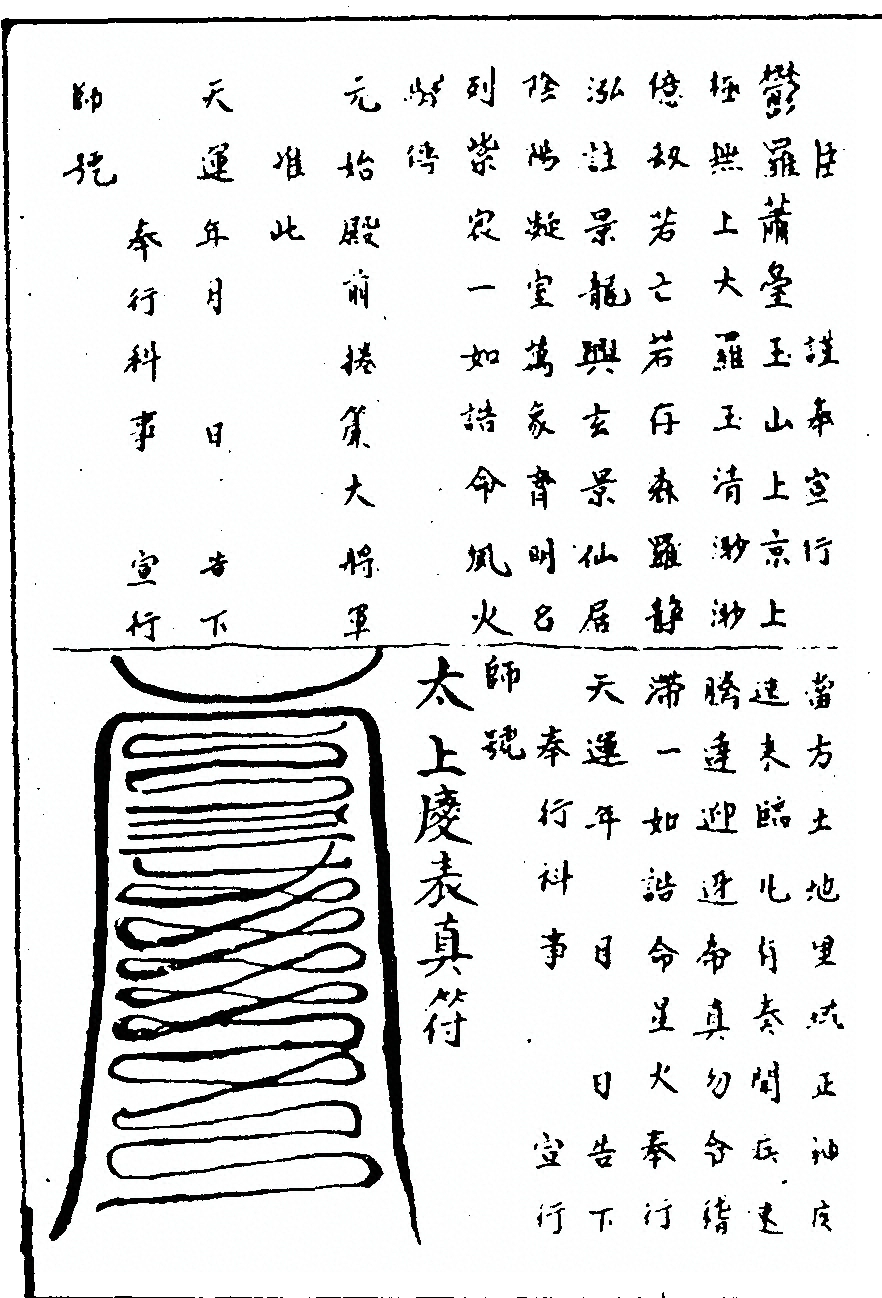 臣 謹奉宣行
鬱羅蕭臺玉山上京上
極無上大羅玉清渺渺
億劫若亡若存森羅靜
泓註景龍興玄景仙居
陰陽凝室萬象齊明
列紫宸一如誥命風火
傳
元始殿前捲簾大將軍
准此
天運年月 日 告下
奉行科事 宣行
師號
當方土地里域正神
速來臨凡奏聞疾速
騰達迎迓帝真勿令稽
滯一如誥命星火奉行
天運年 月 日告下
奉行科事 宣行
師號
太上表真符